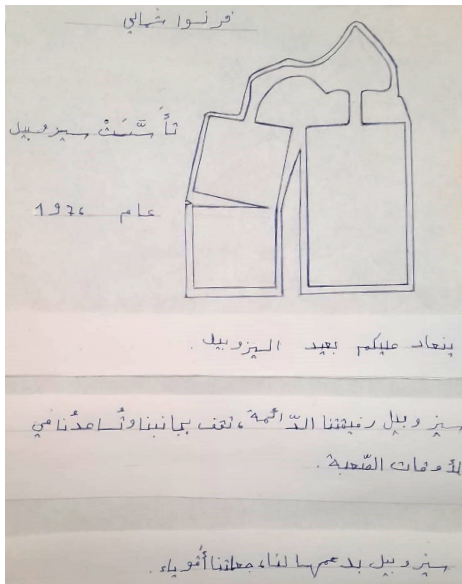 فرنسوا شمالي
تأَسَّسَتْ سيزوبيل
عام 1976
ينعاد عليكم بعيد السيزوبيل.
سيزوبيل رفيقتنا الدّائمة، تقف بجانبنا وتُساعدُنا في
الأوقات الصّعبة.
سيزوبيل بدعمها لنا، جعلتنا أقوياء.